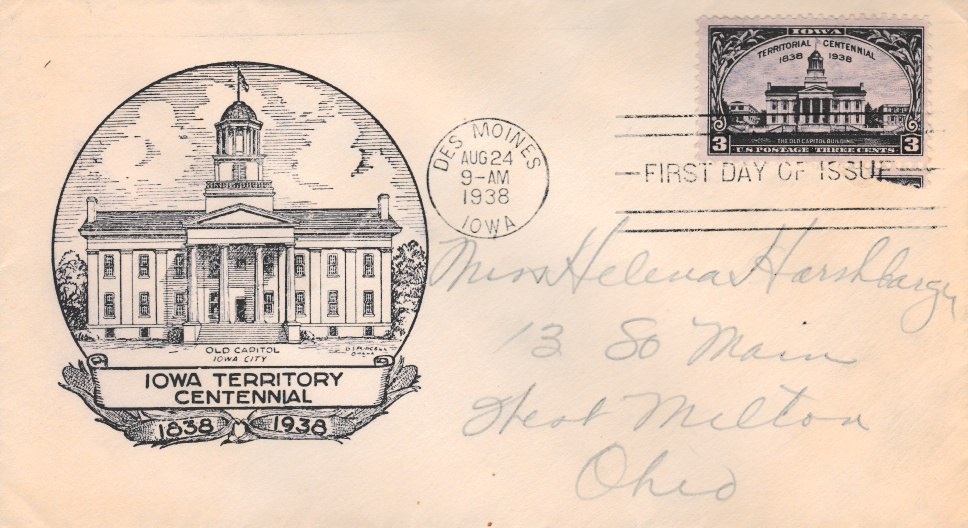 IOWA
TERRITORIAL CENTENNIAL
1838 1938
THE OLD CAPITOL BUILDING
3 U.S. POSTAGE THREE CENTS 3
DES MOINES
AUG 24
9-AM
1938
IOWA
FIRST DAY OF ISSUE
Miss Helena Harshbarger
13 So Main
West Milton
Ohio
OLD CAPITOL
IOWA CITY
IOWA TERRITORY
CENTENNIAL
1838 1938